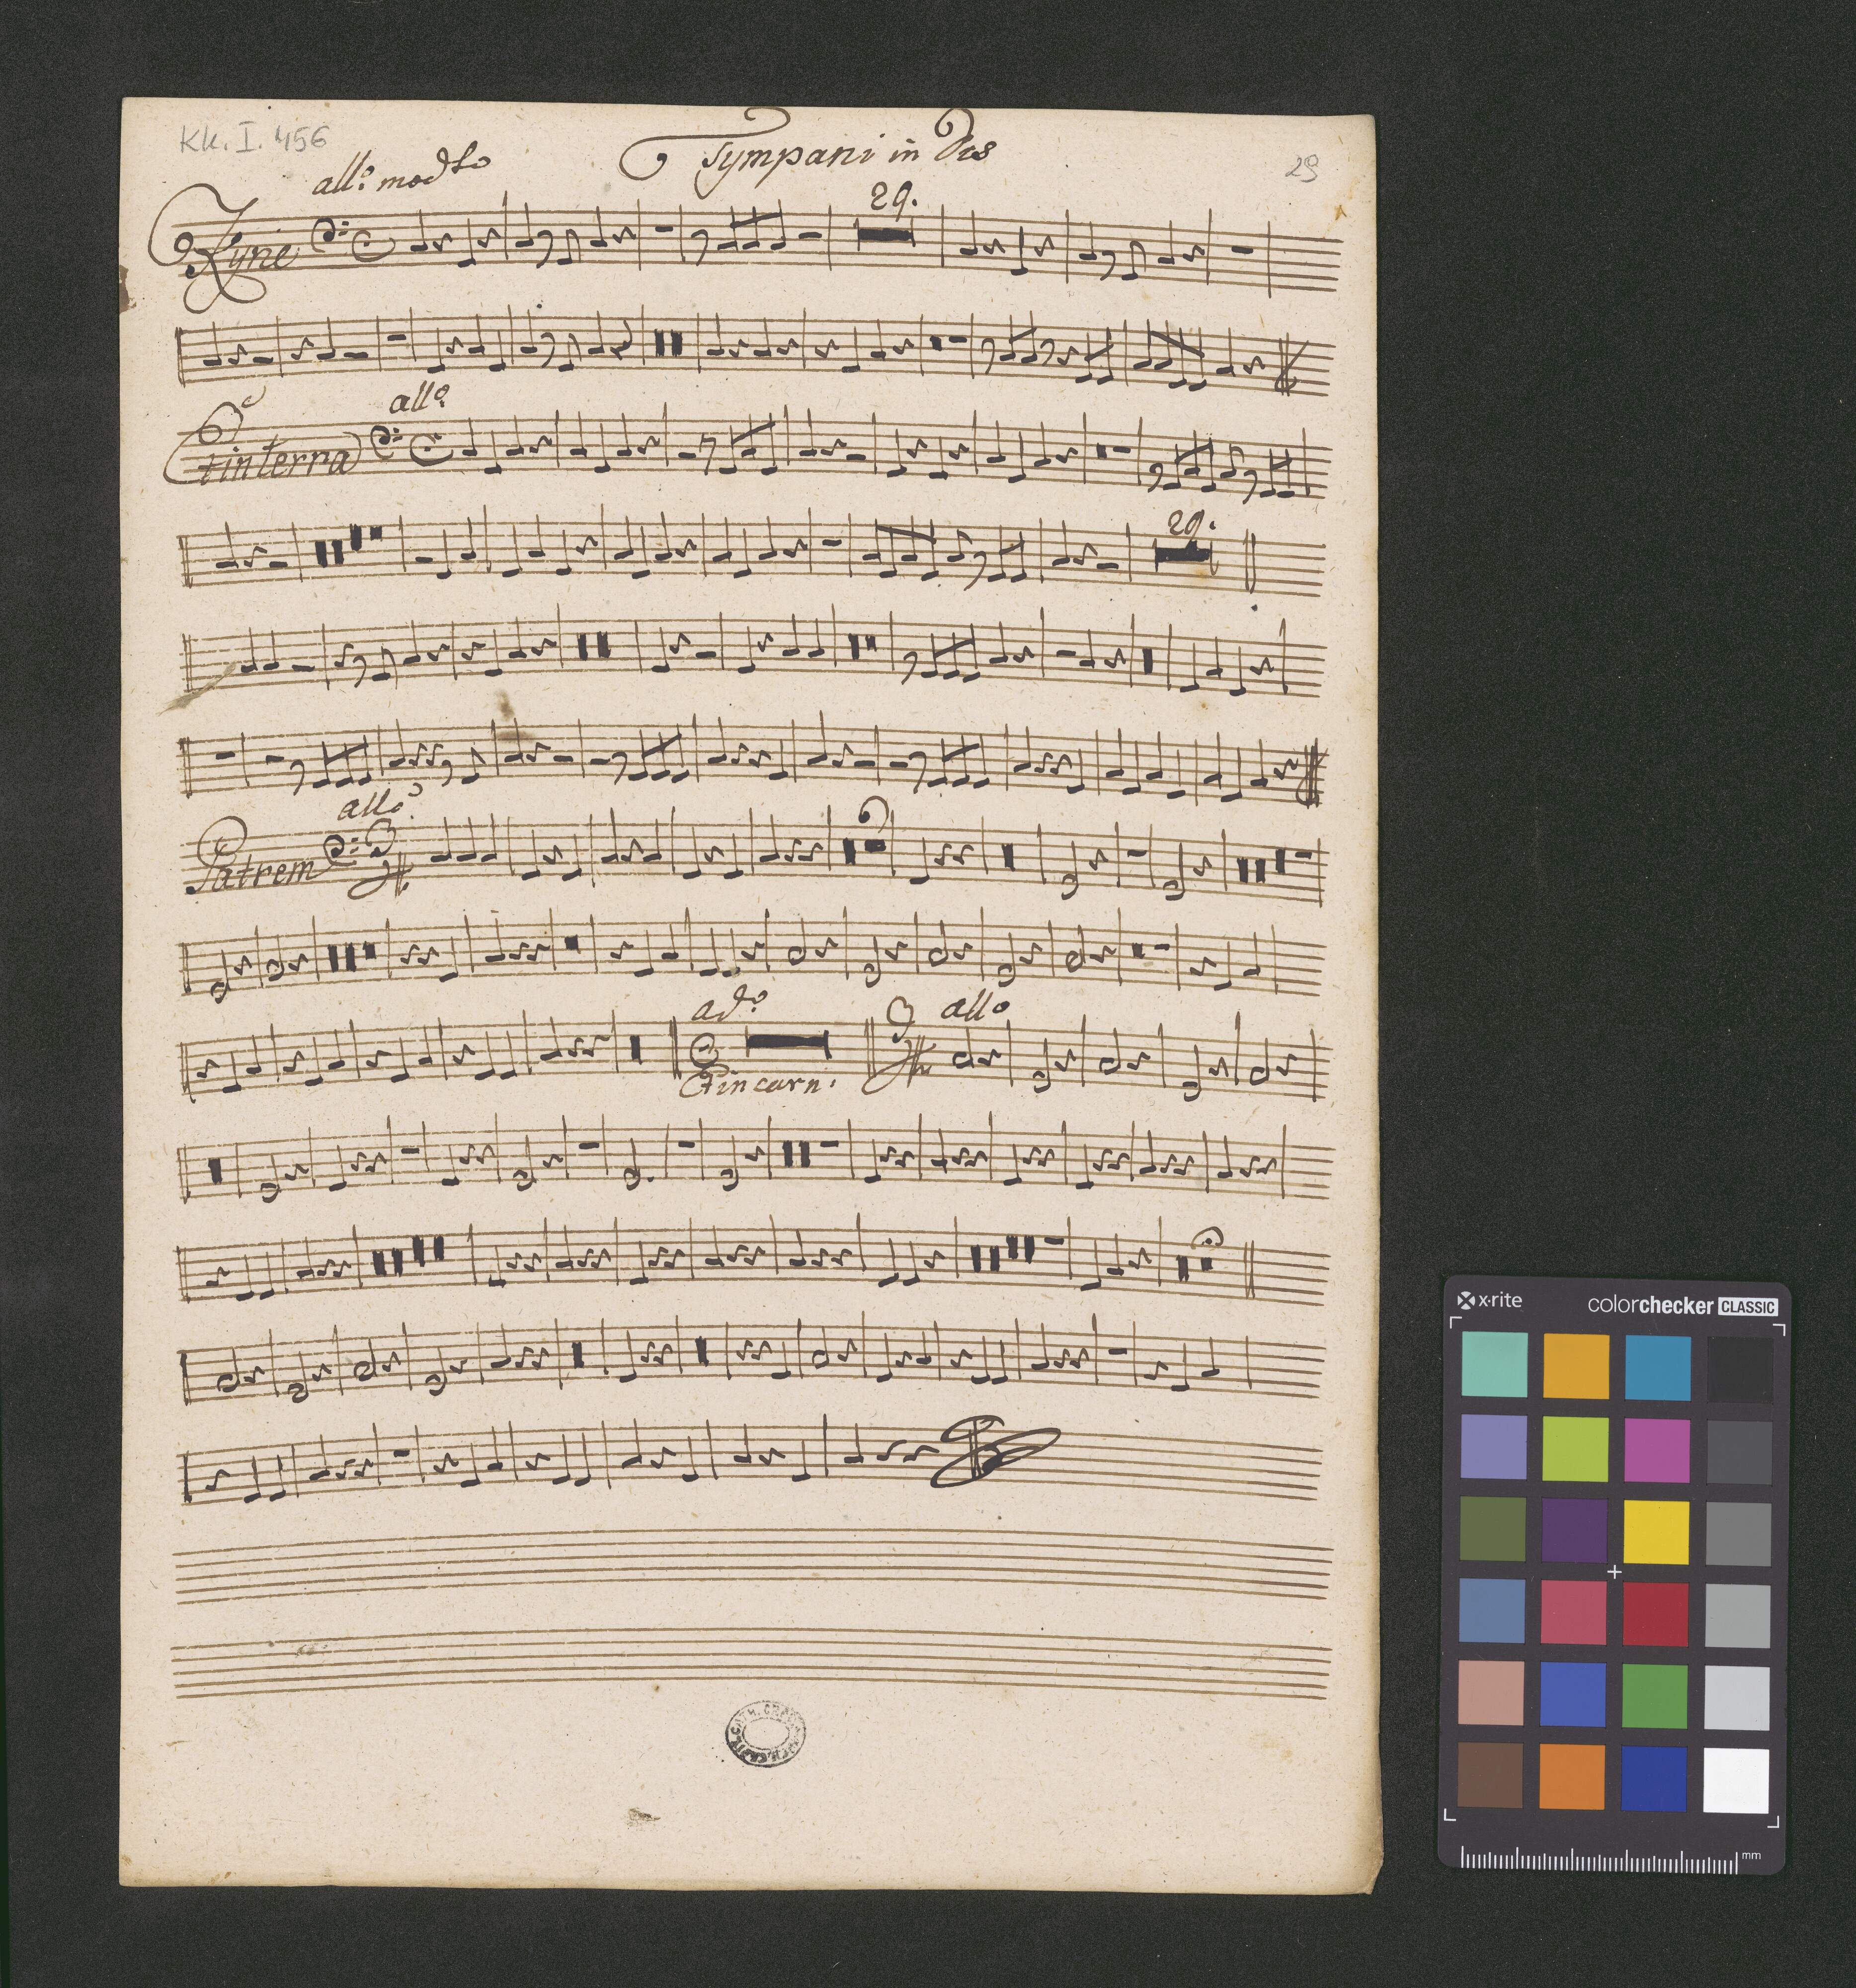 Kk. I. 456
Tympani in Dis
29
all.o modto
29.
Kyrie
all.o
Et in terra
29.
all.o
Patrem
3
4
ad.o
3
4
allo
Et in carn:
x·rite
colorchecker CLASSIC
mm